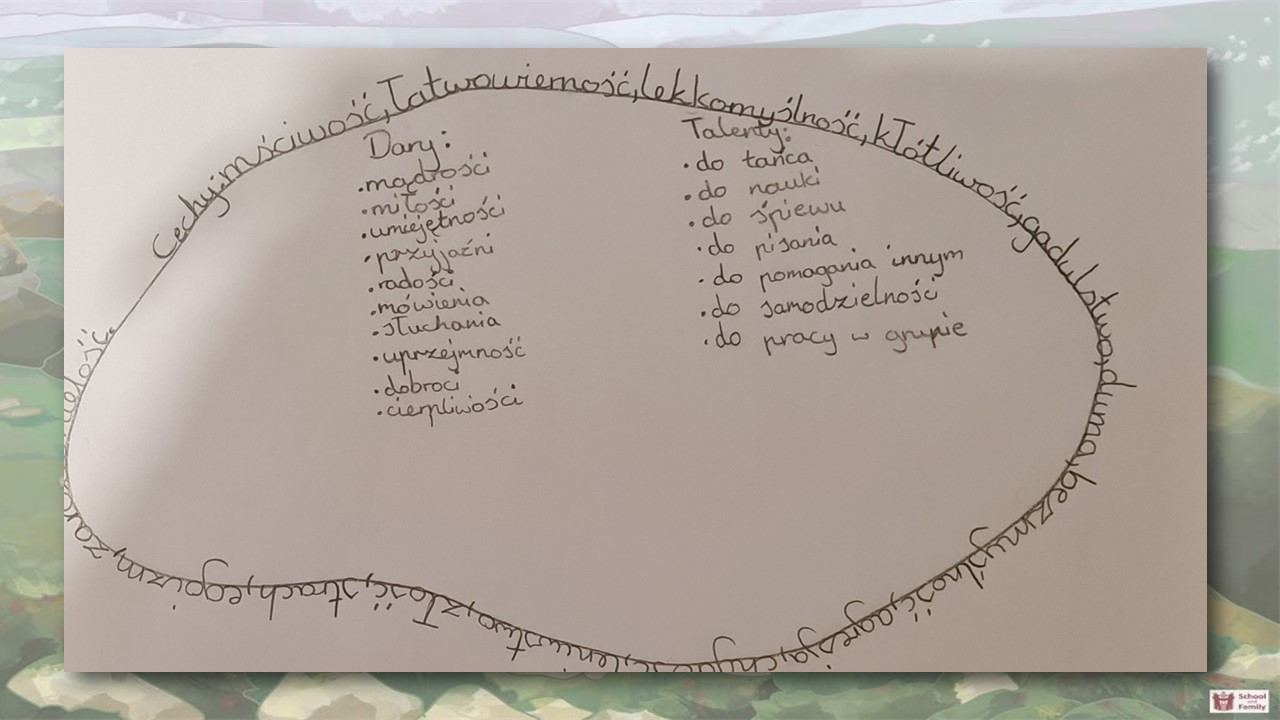 Cechy:mściwość,łatwowierność,lekkomyślność,kłótliwość,gadulstwo,duma,bezmyślność,agresja,lenistwo,złość,strach,egoizm,
Dary:
•mądrości
•miłości
•umiejętności
•przyjaźni
•radości
•mówienia
•słuchania
•uprzejmność
•dobroci
•cierpliwości
Talenty:
•do tańca
•do nauki
•do śpiewu
•do pisania
•do pomagania innym
•do samodzielność
•do pracy w grupie
School
and
Family